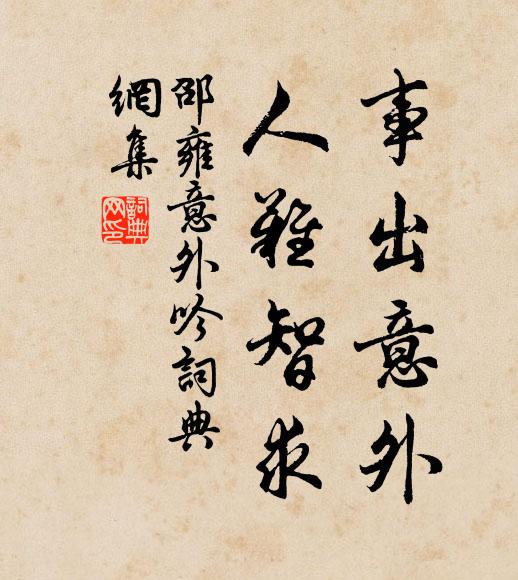 事出意外
人難智求
邵雍意外吟詞典
網集
詞典
网印